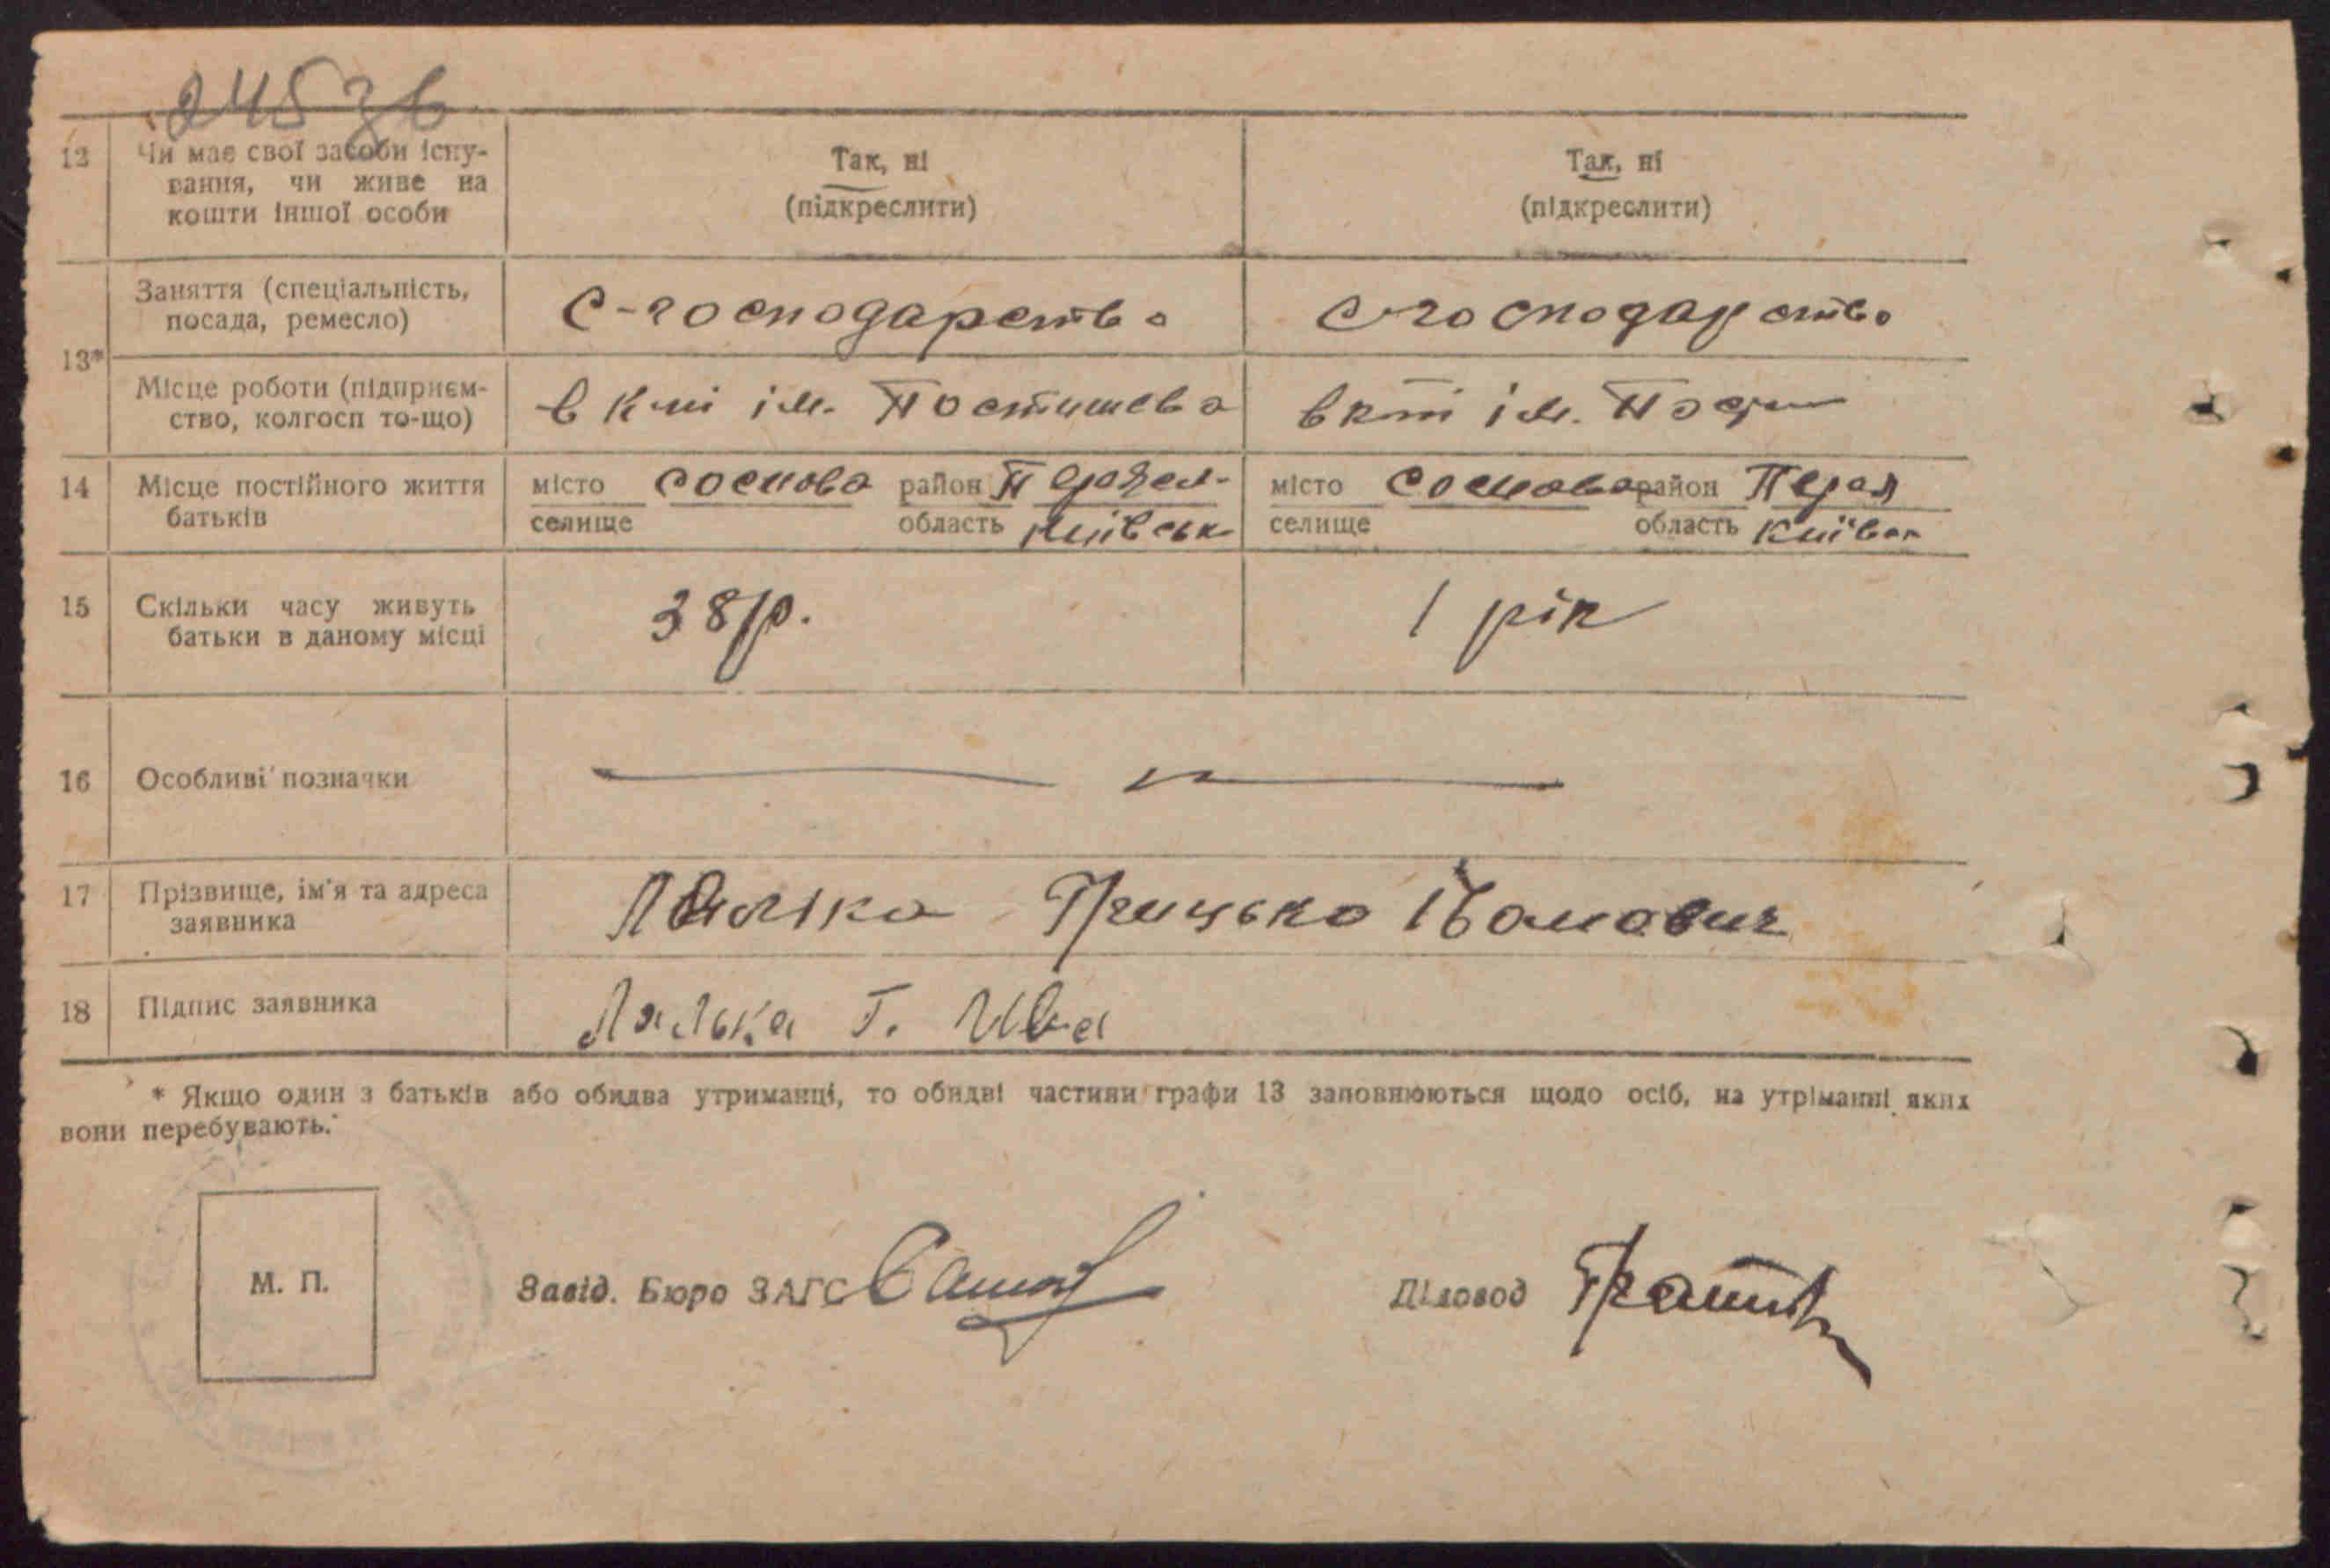 12 Чи має свої засоби існу-
вання, чи живе на
кошти іншої особи
Так, ні
(підкреслити)
Так, ні
(підкреслити)
13*
Заняття (спеціальність,
посада, ремесло)
С-господарство
С-господарство
Місце роботи (підприєм-
ство, колгосп то-що)
в к-пі ім. Постишева
в кпі ім.
14 Місце постійного життя
батьків
місто Соснова район Переясл-
селище область Київськ
місто Соснова район Перая
селище область Київ
15 Скільки часу живуть
батьки в даному місці
38 р.
1 рік
16 Особливі позначки
17 Прізвище, ім'я та адреса
заявника
Лялька Грицько Іванович
18 Підпис заявника
Лялька Г. Ива
* Якщо один з батьків або обидва утриманці, то обидві частини графи 13 заповнюються щодо осіб, на утріманні яких
вони перебувають.
М. П.
Завід. Бюро ЗАГС
Діловод